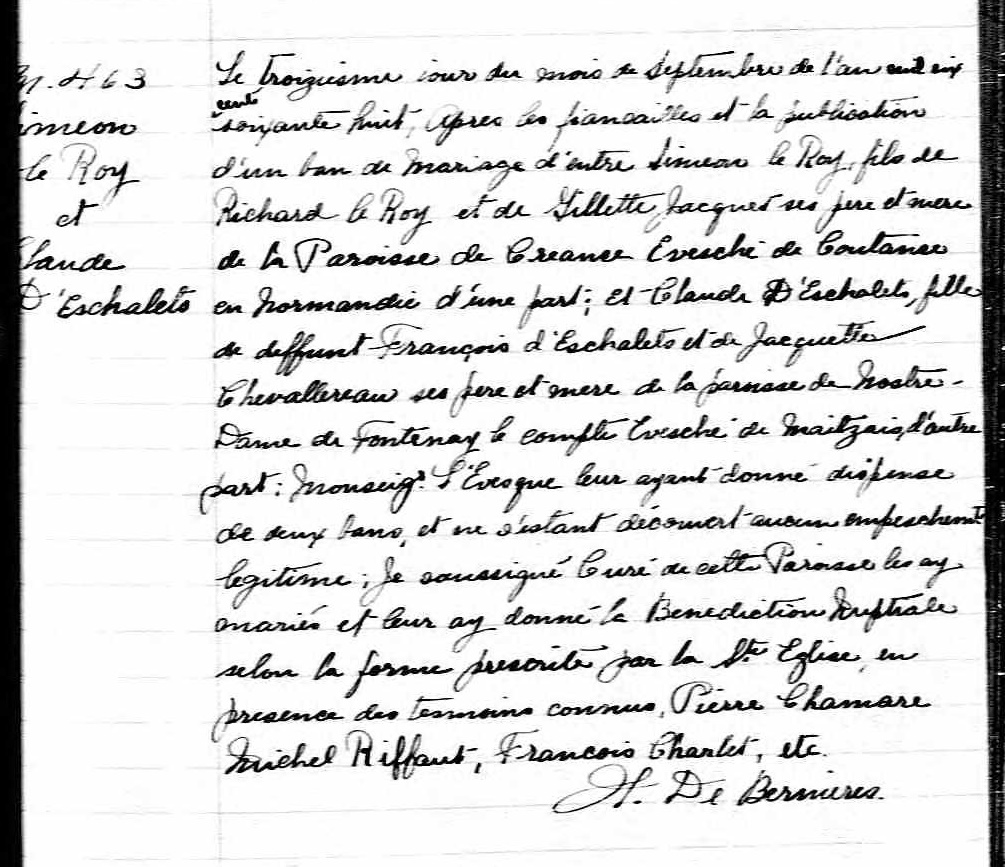 M. 463
Simeon
le Roy
et
Claude
D'Eschalets
Le troiziesme iour du mois de Septembre de l'an mil six
cents
soixante huit, Apres les fiancailles et la publication
d'un ban de Mariage d'entre Simeon le Roy, fils de
Richard le Roy et de Gillette Jacques ses pere et mere
de la Paroisse de Creance Evesché de Coutance
en Normandie d'une part; et Claude D'Eschalets, fille
de deffunt François d'Eschalets et de Jacquette
Chevallereau ses pere et mere de la paroisse de Nostre-
Dame de Fontenay le compte Evesché de Maitzais, d'autre
part: Monseigr. l'Evesque leur ayant donné dispense
de deux bans, et ne s'estant découvert aucun empeschemt
legitime; Je soussigné Curé de cette Paroisse les ay
mariés et leur ay donné la Benediction Nuptiale
selon la forme prescrite par la Ste Eglise, en
presence des tesmoins connus, Pierre Chamare
Michel Riffaut, Francois Charlet, etc.
H. De Bernieres.